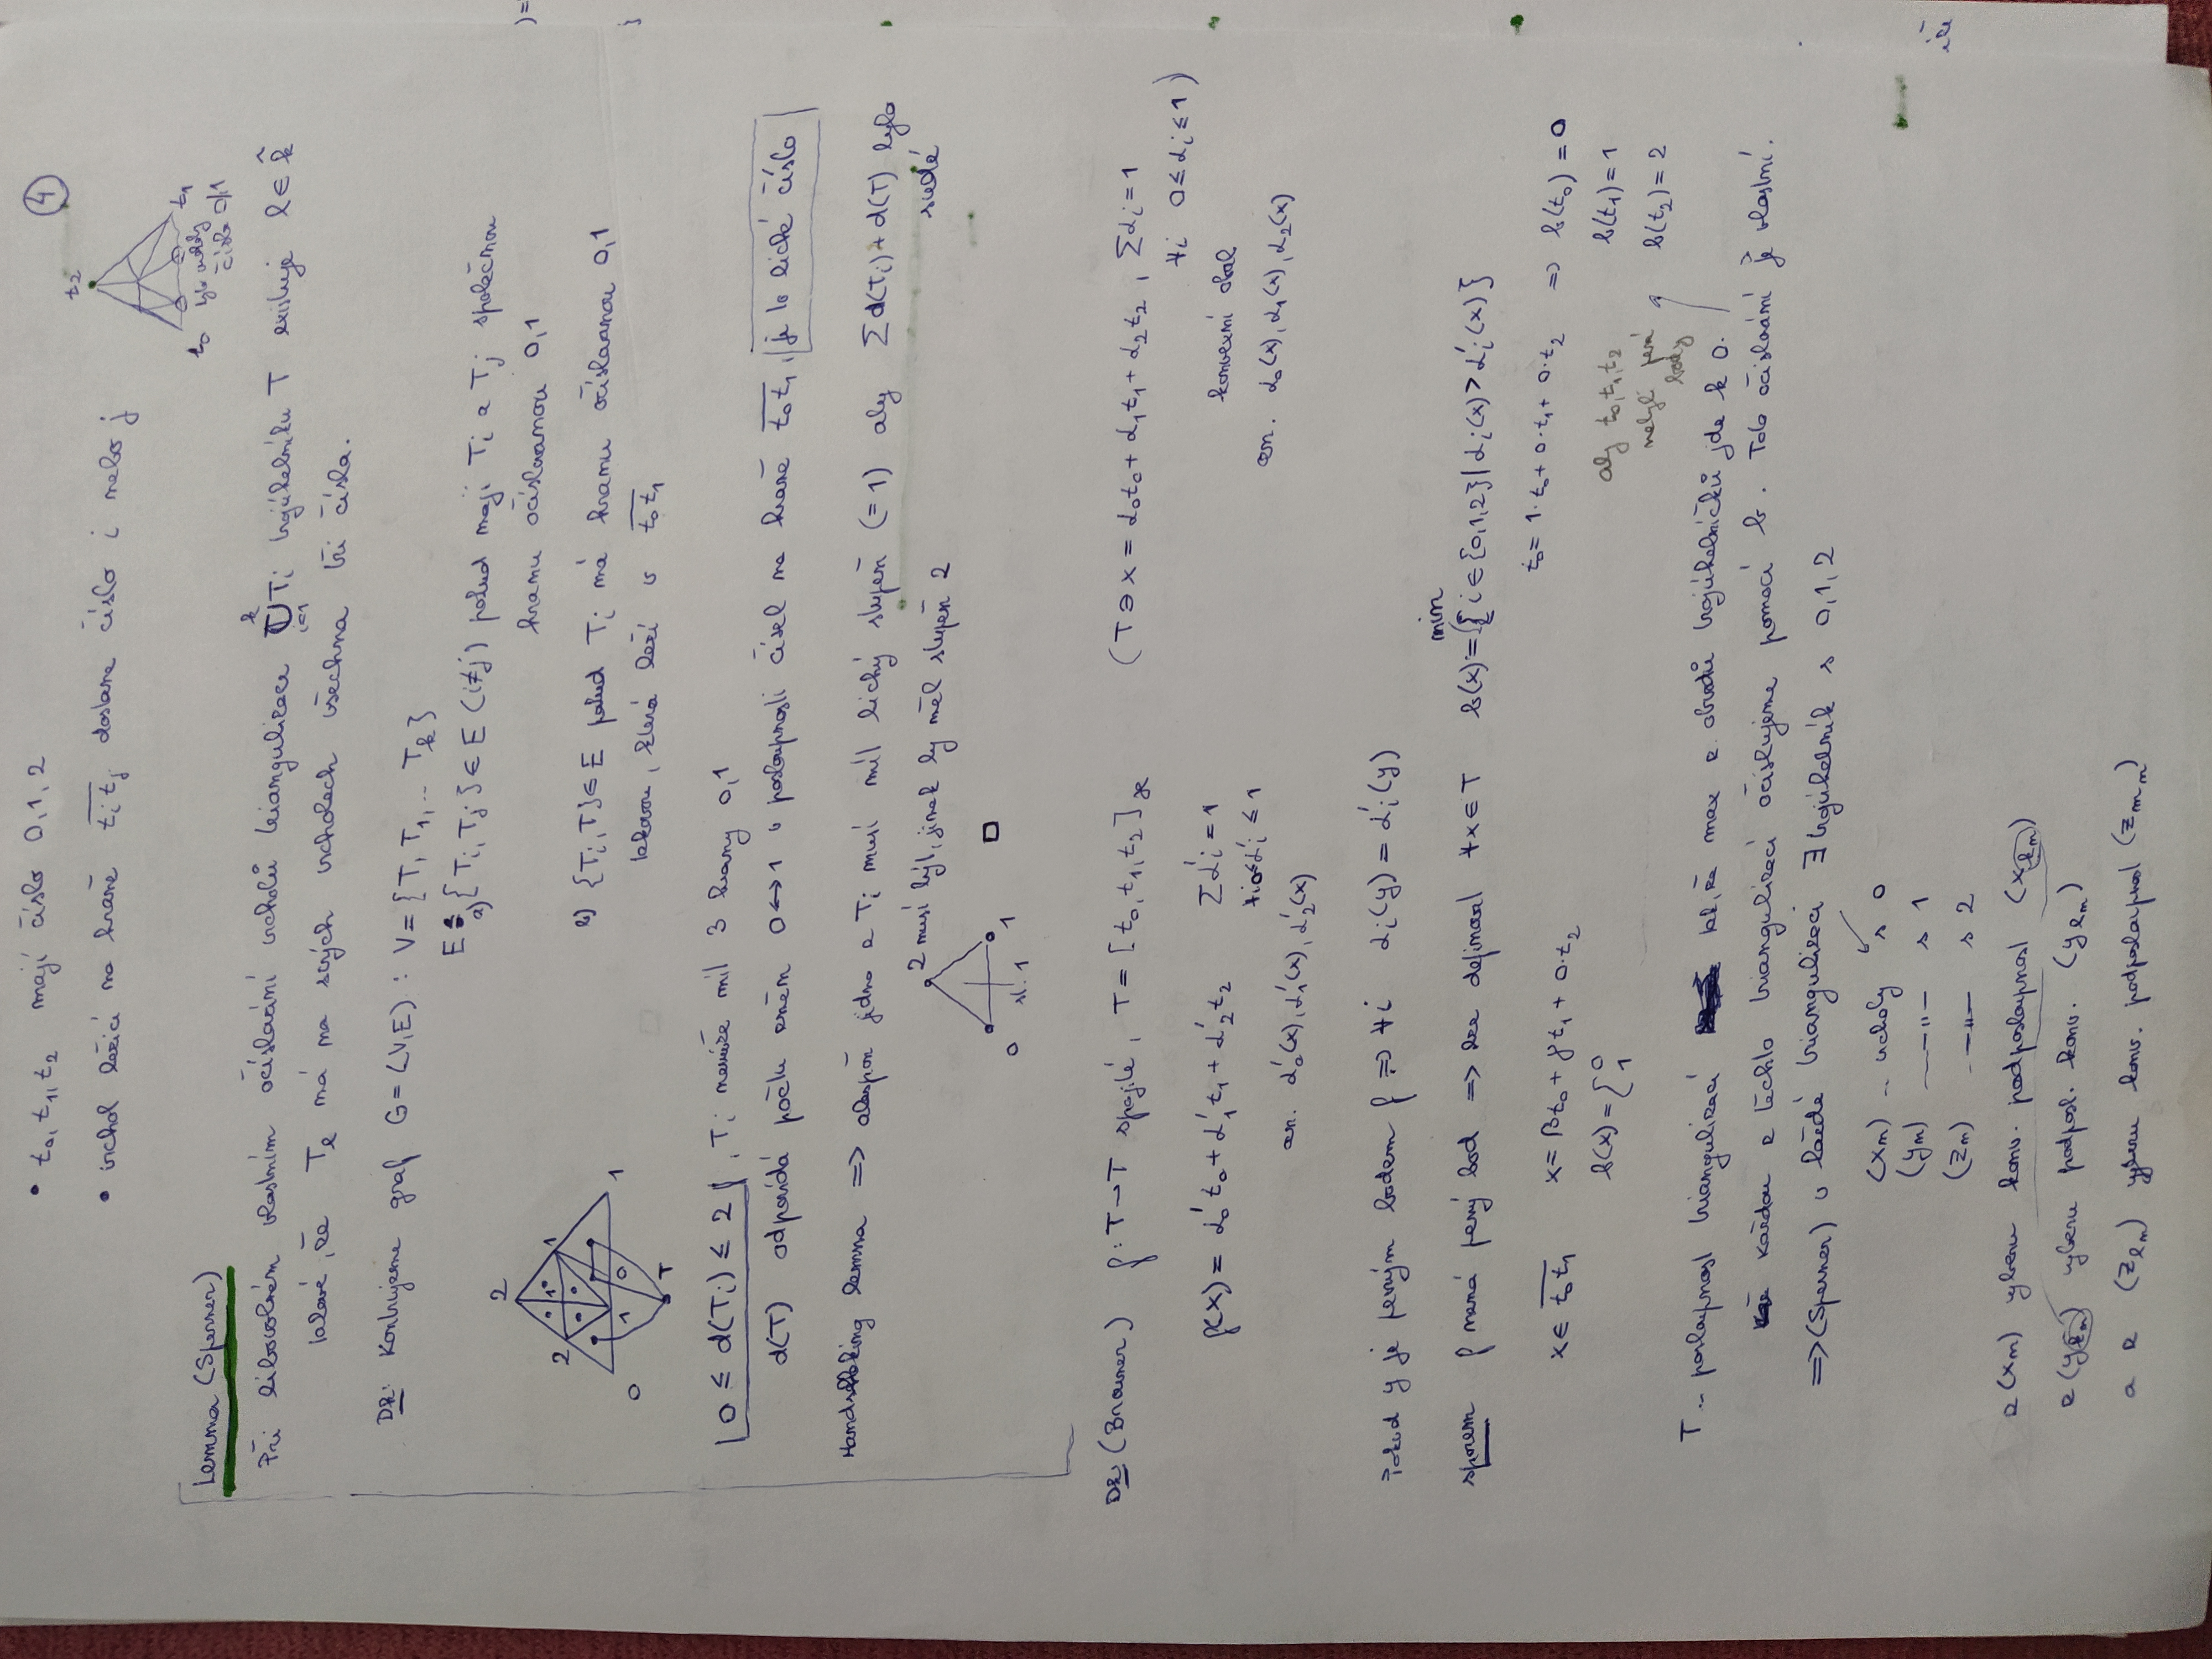 ④
• t₀, t₁, t₂ mají číslo 0, 1, 2
• vrchol ležící na hraně t̅ᵢt̅ⱼ dostane číslo i nebo j
t₂
t₀
t₁
tyto vrcholy
číslo 0,1
Lemma (Sperner)
Při libovolném vlastním očíslování vrcholů triangulace ⋃ᵢ₌₁ᵏ Tᵢ trojúhelníku T existuje l ∈ k̂
takové, že Tₗ má na svých vrcholech všechna tři čísla.
Dk: Konstruujeme graf G = (V,E) : V = {T, T₁, .. Tₖ}
E: a) {Tᵢ, Tⱼ} ∈ E (i≠j) pokud mají Tᵢ a Tⱼ společnou
hranu očíslovanou 0,1
b) {Tᵢ, T} ∈ E pokud Tᵢ má hranu očíslovanou 0,1
takovou, která leží v t̅₀t̅₁
2
2 1 1
0 1 0 T
0 ≤ d(Tᵢ) ≤ 2, Tᵢ nemůže mít 3 hrany 0,1
d(T) odpovídá počtu změn 0↔1 v posloupnosti čísel na hraně t̅₀t̅₁, je to liché číslo
Handshaking lemma ⇒ alespoň jedno z Tᵢ musí mít lichý stupeň (=1) aby Σd(Tᵢ)+d(T) bylo
sudé
2 musí být, jinak by měl stupeň 2
0 1
st. 1
□
Dk (Brouwer) f: T→T spojité, T = [t₀, t₁, t₂]ϰ (T ∋ x = α₀t₀ + α₁t₁ + α₂t₂, Σαᵢ = 1
∀i 0≤αᵢ≤1)
konvexní obal
f(x) = α₀'t₀ + α₁'t₁ + α₂'t₂ Σαᵢ' = 1
∀i 0≤αᵢ'≤1
zn. α₀(x), α₁(x), α₂(x)
zn. α₀'(x), α₁'(x), α₂'(x)
Pokud y je pevným bodem f ⇒ ∀i αᵢ(y) = αᵢ'(y)
sporem f nemá pevný bod ⇒ lze definovat ∀x∈T b(x) := min{i ∈ {0,1,2} | αᵢ(x) > αᵢ'(x)}
t₀ = 1·t₀ + 0·t₁ + 0·t₂ ⇒ b(t₀) = 0
b(t₁) = 1
b(t₂) = 2
aby t₀, t₁, t₂
nebyly pevné
body
x ∈ t̅₀t̅₁ x = βt₀ + γt₁ + 0·t₂
b(x) = { 0
1
T .. posloupnost triangulizací tak, že max z obvodů trojúhelníčků jde k 0.
každou z těchto triangulizací očíslujeme pomocí b. Toto očíslování je vlastní.
⇒ (Sperner) v každé triangulizaci ∃ trojúhelník s 0,1,2
(xₘ) .. vrcholy s 0
(yₘ) —"— s 1
(zₘ) —"— s 2
z (xₘ) vyberu konv. podposloupnost (xₖₘ)
z (yₖₘ) vyberu podposl. konv. (yₗₘ)
a z (zₗₘ) vyberu konv. podposloupnost (zₘₘ)